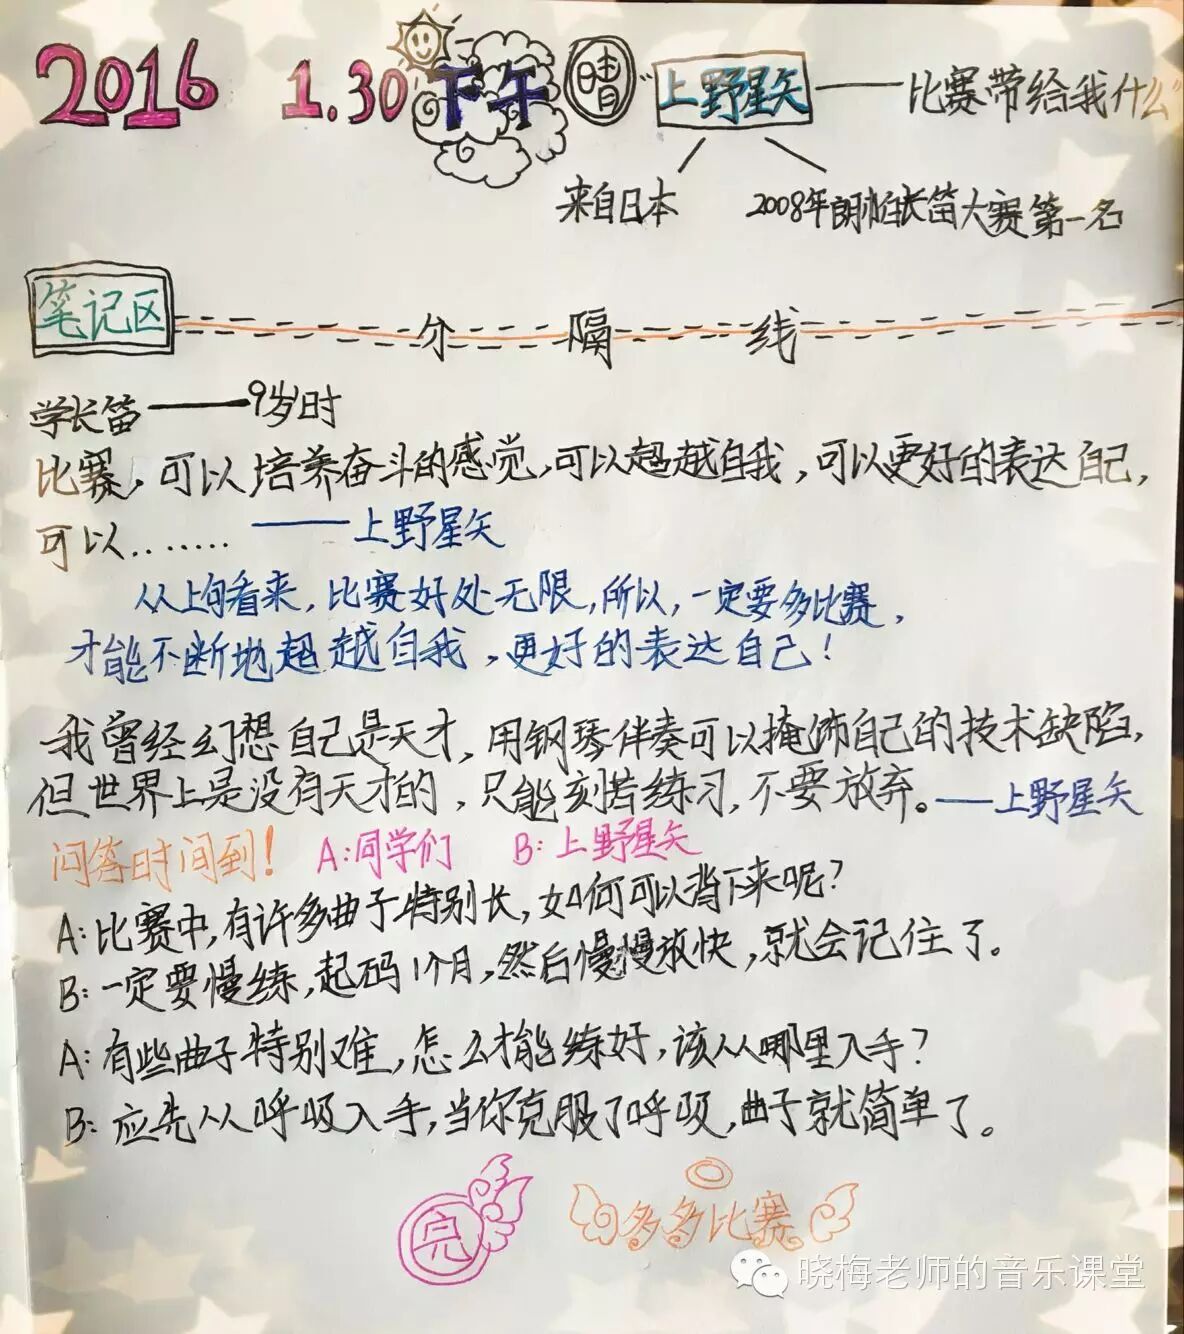 2016 1.30 下午 晴 "上野星矢——比赛带给我什么"
来自日本 2008年朗帕尔长笛大赛第一名
笔记区
分隔线
学长笛——9岁时
比赛,可以培养奋斗的感觉,可以超越自我,可以更好的表达自己,
可以....... ——上野星矢
从上句看来,比赛好处无限,所以,一定要多比赛,
才能不断地超越自我,更好的表达自己!
我曾经幻想自己是天才,用钢琴伴奏可以掩饰自己的技术缺陷,
但世界上是没有天才的,只能刻苦练习,不要放弃。——上野星矢
问答时间到! A:同学们 B:上野星矢
A:比赛中,有许多曲子特别长,如何可以背下来呢?
B:一定要慢练,起码1个月,然后慢慢放快,就会记住了。
A:有些曲子特别难,怎么才能练好,该从哪里入手?
B:应先从呼吸入手,当你克服了呼吸,曲子就简单了。
完 多多比赛
晓梅老师的音乐课堂